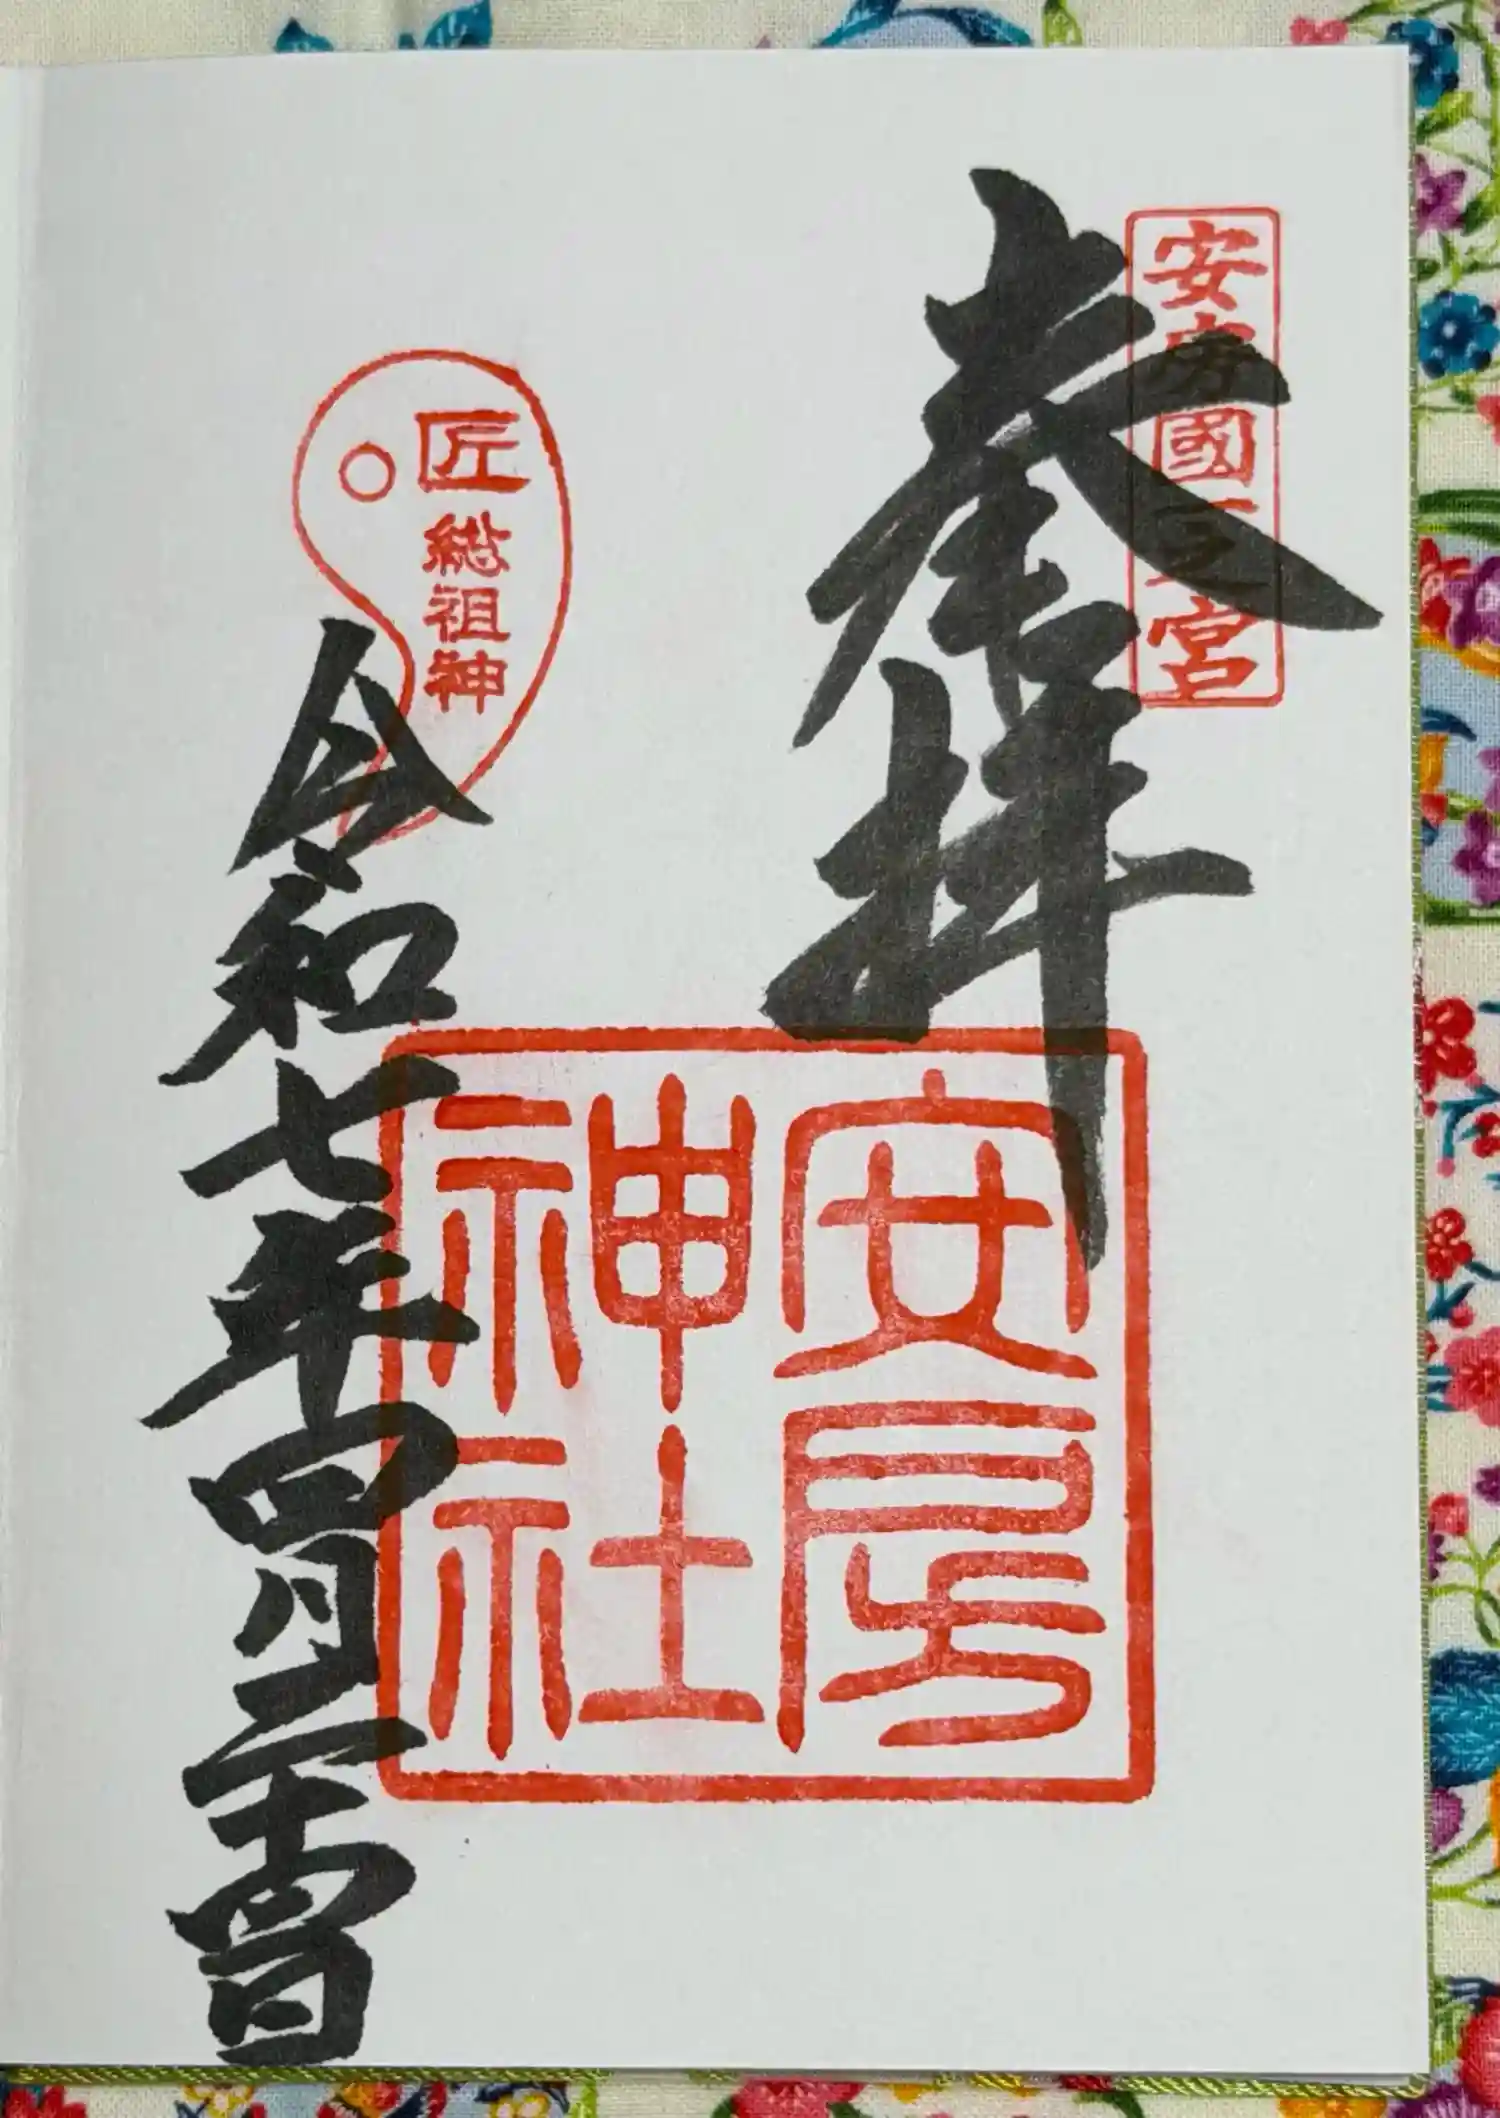 安房國一之宮
奉拝
安房神社
匠総祖神
令和七年四月二十四日